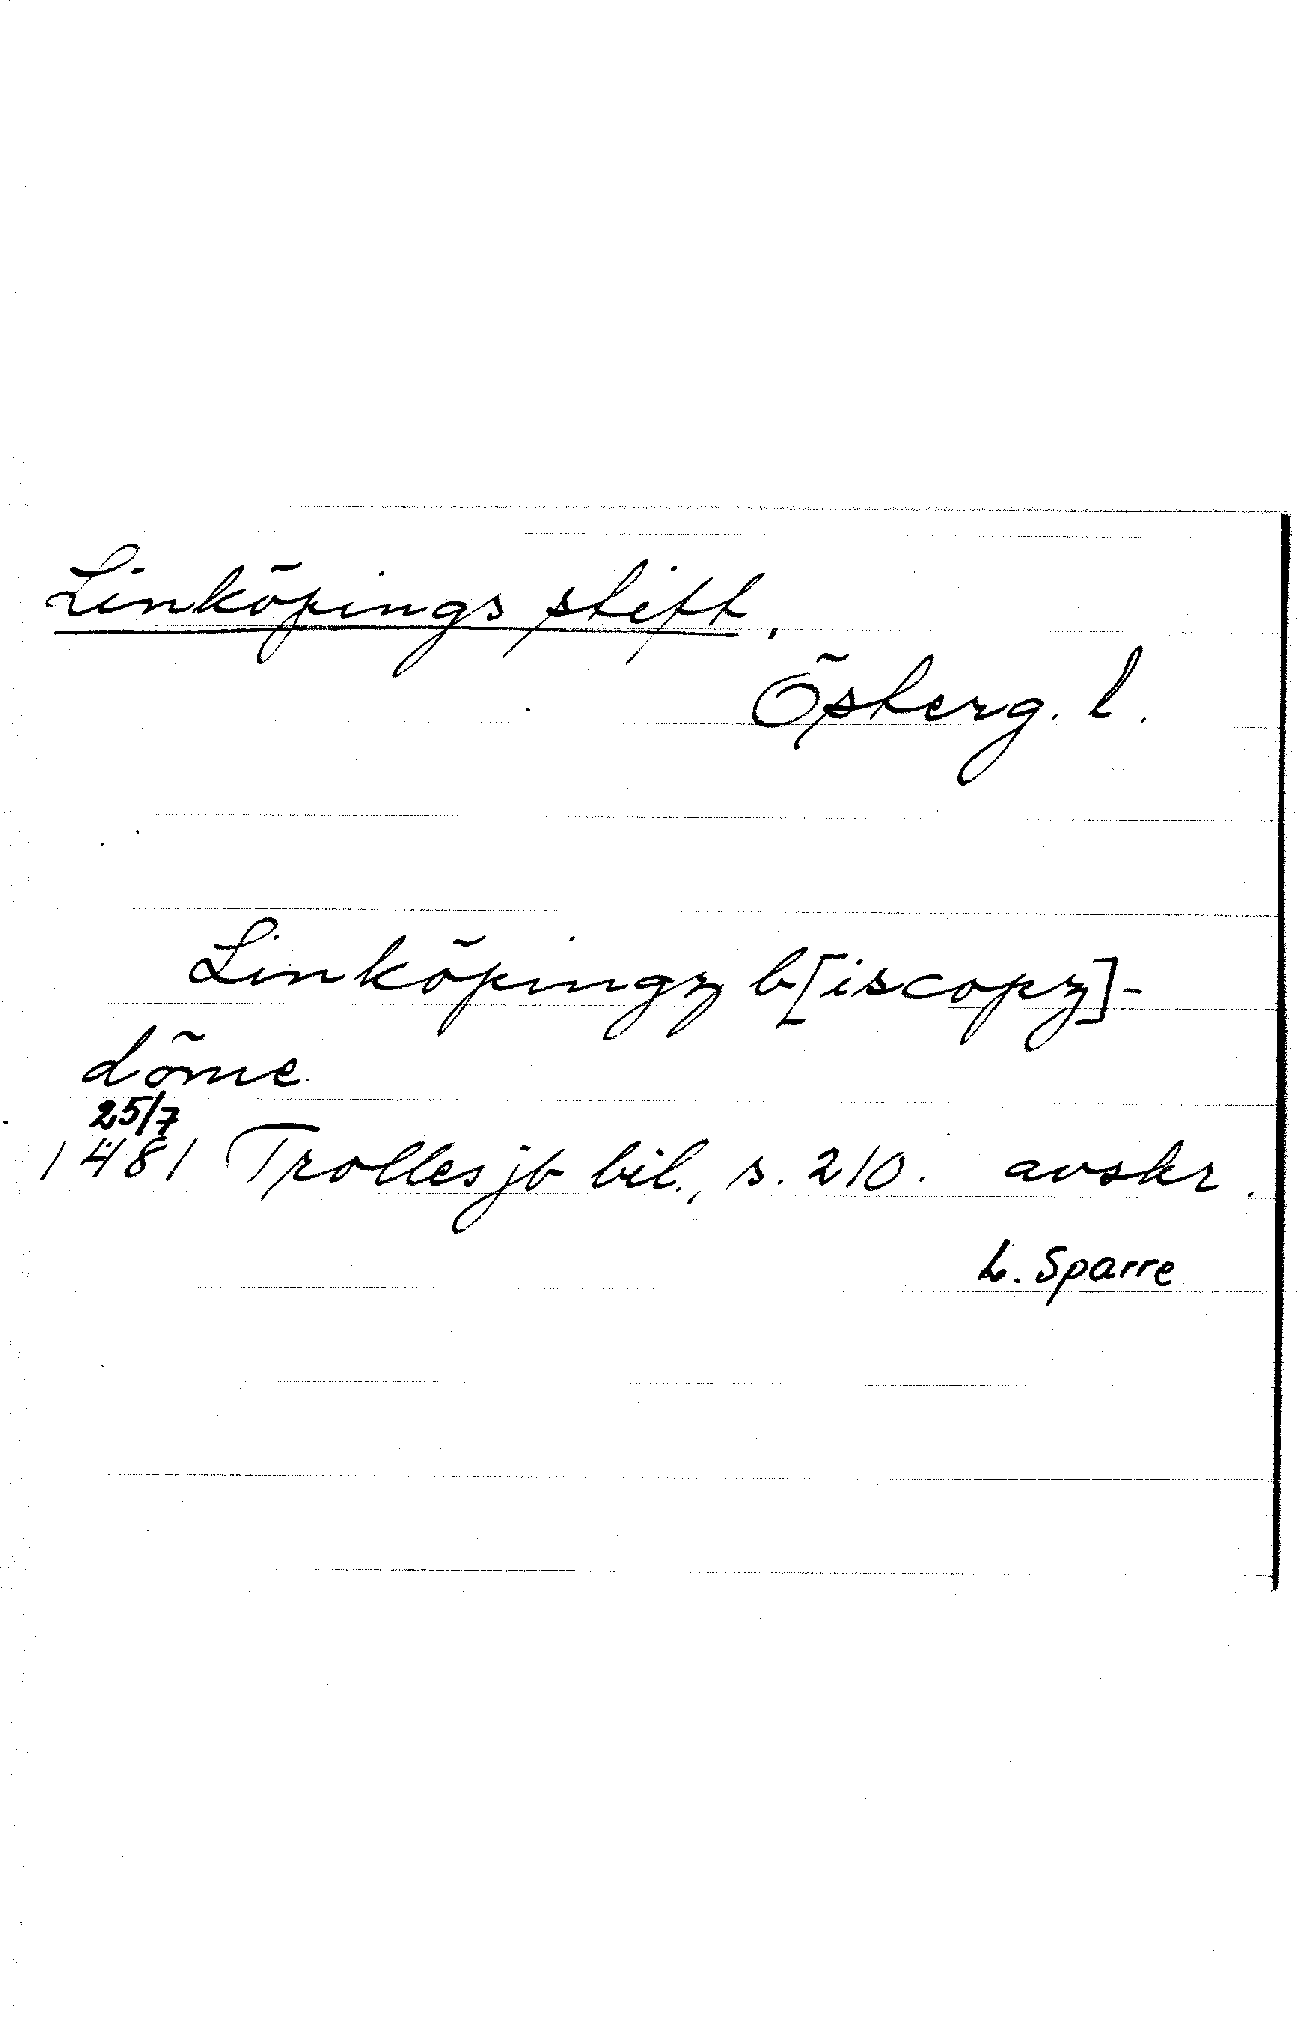 Linköpings stift.
Österg. l.
Linköpingz b[iscopz]-
döme
25/7
1481 Trolles jb bil., s. 210. avskr.
L. Sparre